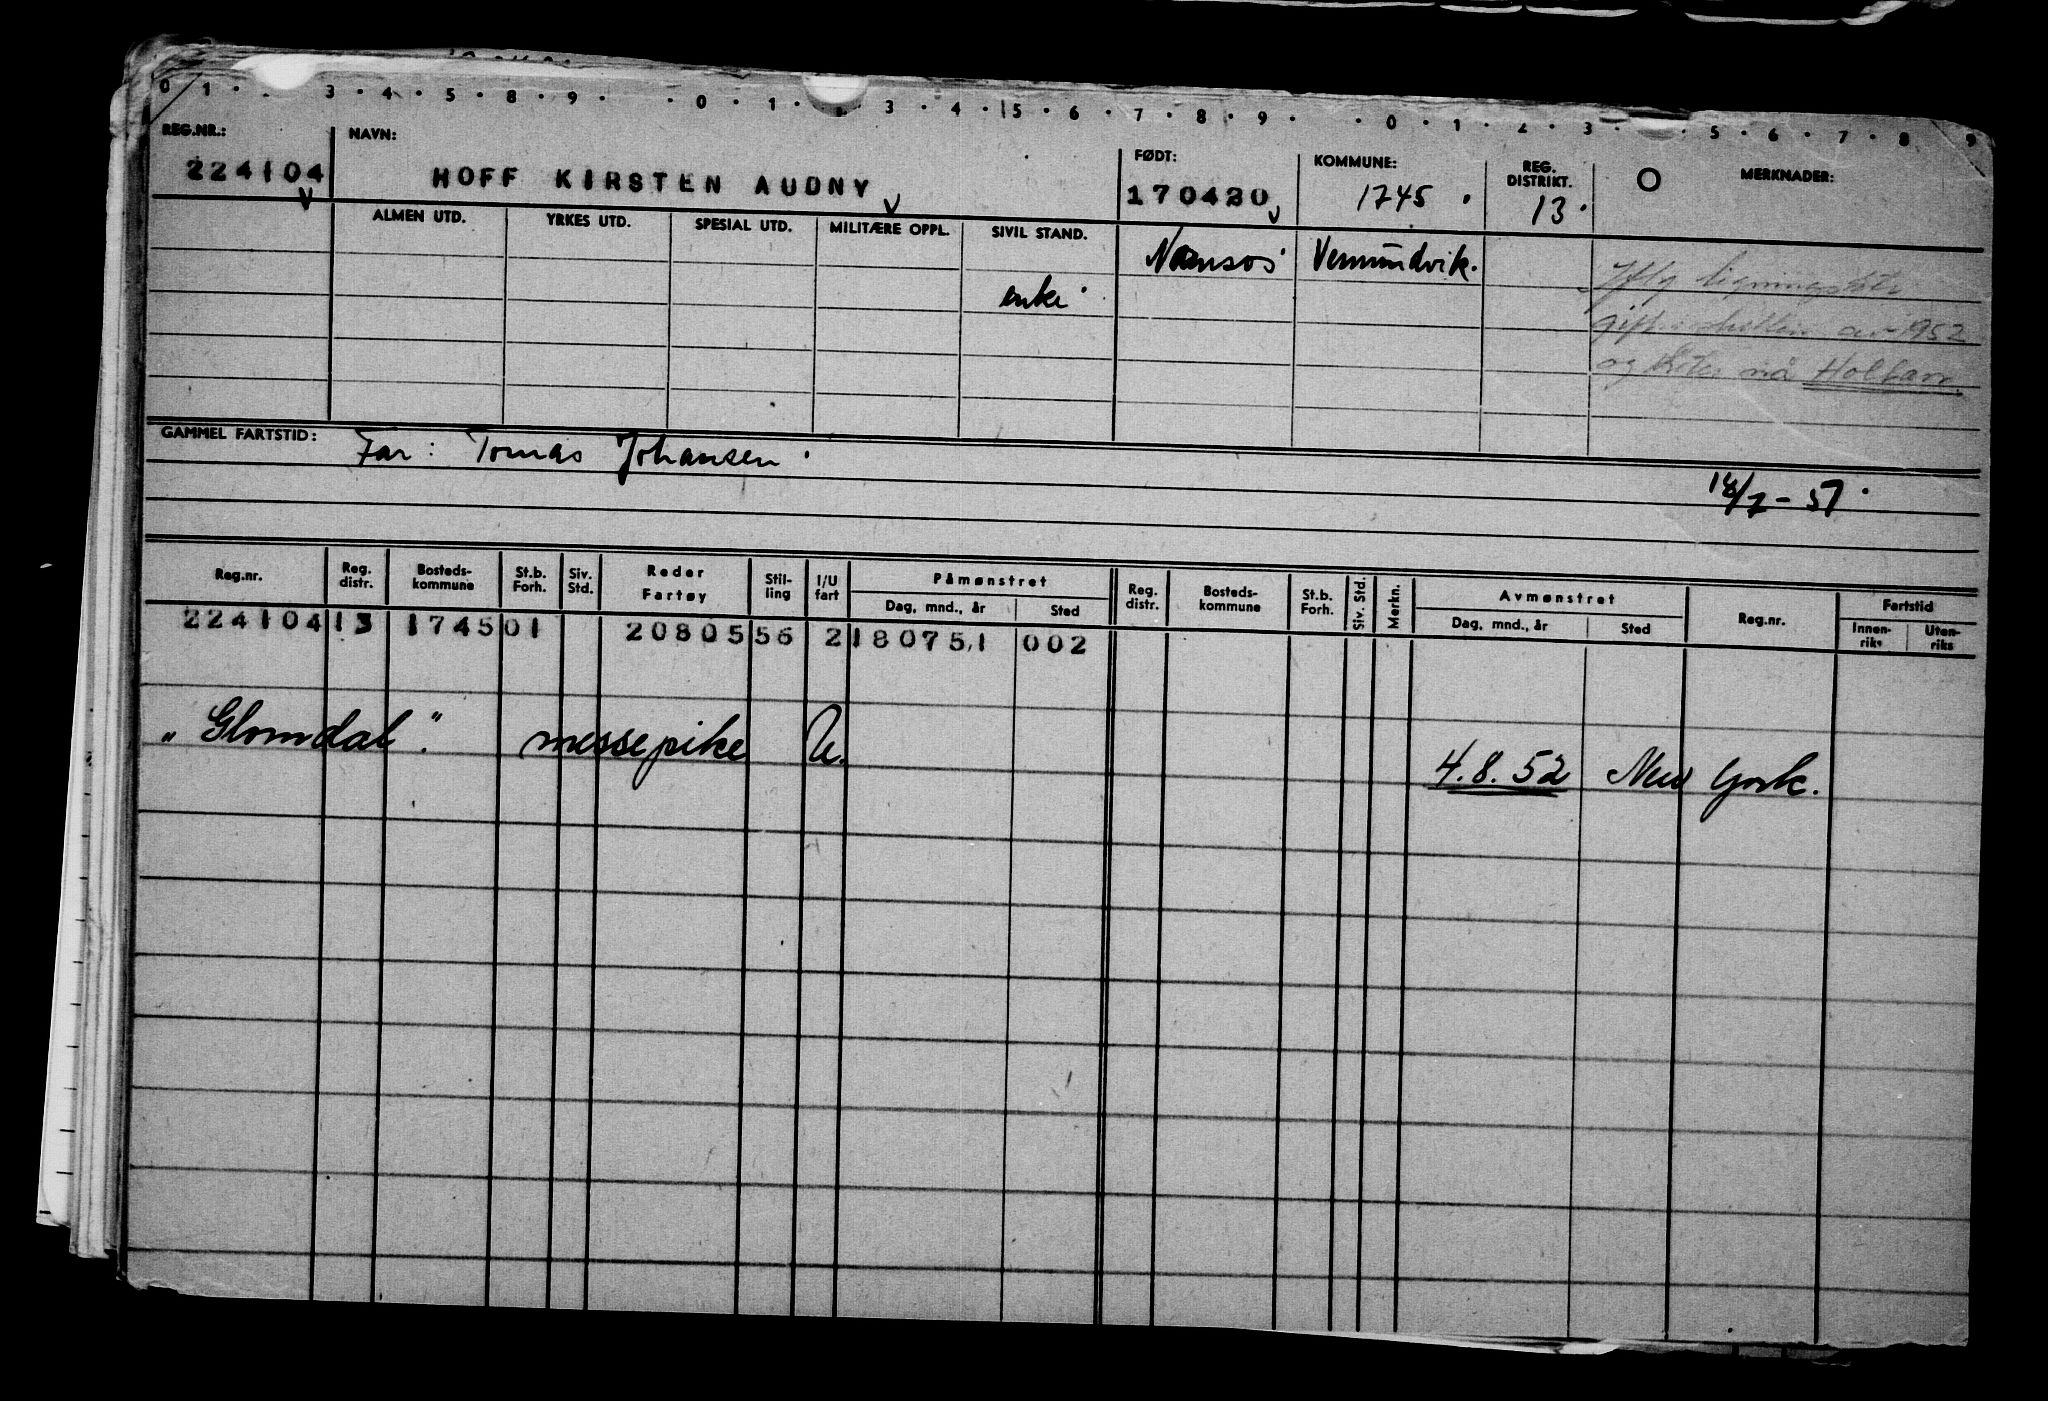 0 1 · 3 · 4 · 5 · 8 · 9 · · 0 · 1 · 3 · 4 · 5 · 6 · 7 · 8 · 9 · · 0 · 1 · 2 · 3 · 5 · 6 · 7 · 8 · 9
REG.NR.: NAVN: FØDT: KOMMUNE: REG. DISTRIKT. MERKNADER:
224104 HOFF KIRSTEN AUDNY 170420 1745 13
ALMEN UTD. YRKES UTD. SPESIAL UTD. MILITÆRE OPPL. SIVIL STAND.
Namsos Vemundvik.
enke
gift av 1952
og heter nå Holtan.
GAMMEL FARTSTID: Far: Tomas Johansen
18/7-51
Reg.nr. Reg. distr. Bosteds-kommune St.b. Forh. Siv. Std. Reder Fartøy Stil-ling I/U fart Påmønstret Dag, mnd., år Sted Reg. distr. Bosteds-kommune St.b. Forh. Siv. Std. Merkn. Avmønstret Dag, mnd., år Sted Reg.nr. Fartstid Innen-riks Uten-riks
224104 13 1745 01 20805 56 2 180751 002
"Glomdal". messepike U. 4.8.52 New York.